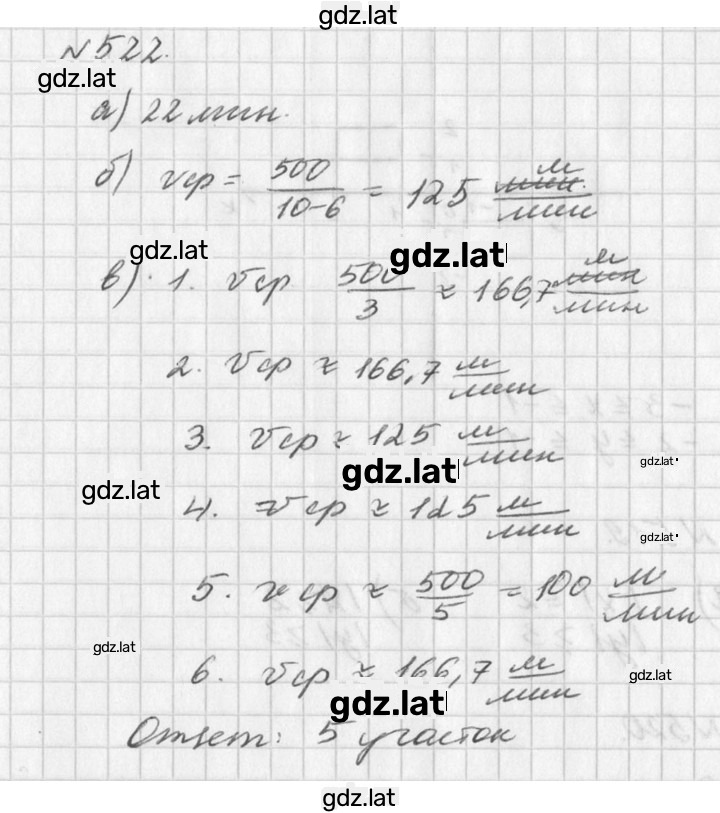 gdz.lat
N 522.
gdz.lat
а) 22 мин.
б) vср = 500/(10-6) = 125 м/мин
gdz.lat
gdz.lat
в) 1. vср 500/3 ≈ 166,7 м/мин
2. vср ≈ 166,7 м/мин
3. vср ≈ 125 м/мин
gdz.lat
gdz.lat
gdz.lat
4. vср ≈ 125 м/мин
gdz.lat
5. vср ≈ 500/5 = 100 м/мин
gdz.lat
6. vср ≈ 166,7 м/мин
gdz.lat
gdz.lat
Ответ: 5 участок
gdz.lat